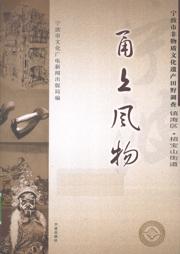 宁波市非物质文化遗产田野调查
镇海区·招宝山街道
甬上风物
宁波市文化广电新闻出版局 编